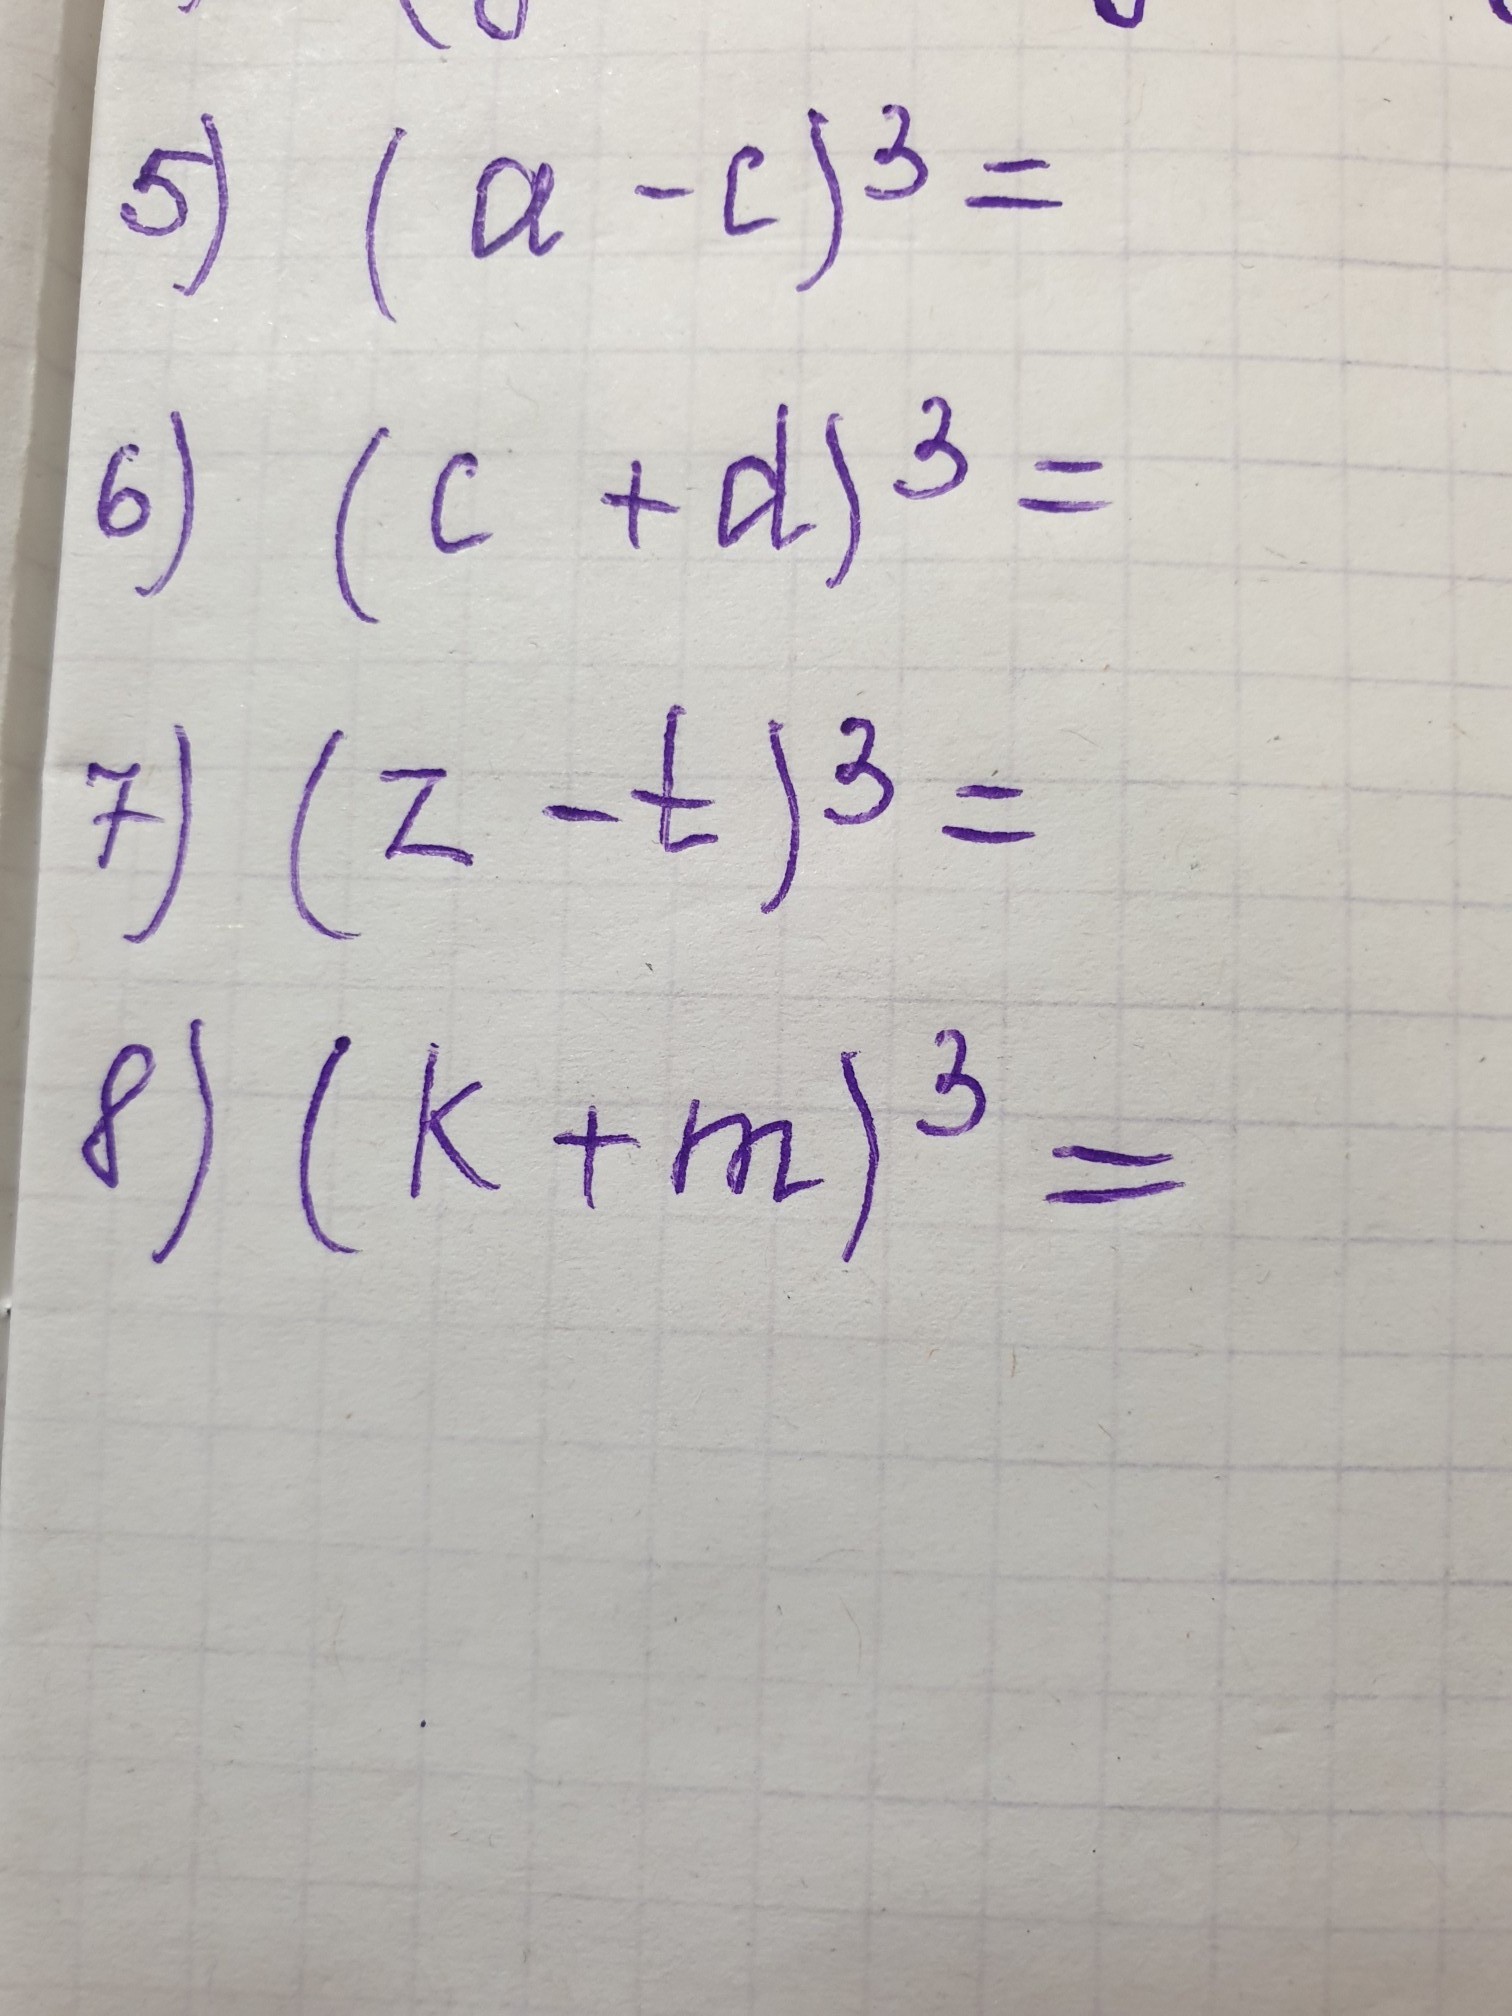 5) (a - c)³ =
6) (c + d)³ =
7) (z - t)³ =
8) (k + m)³ =